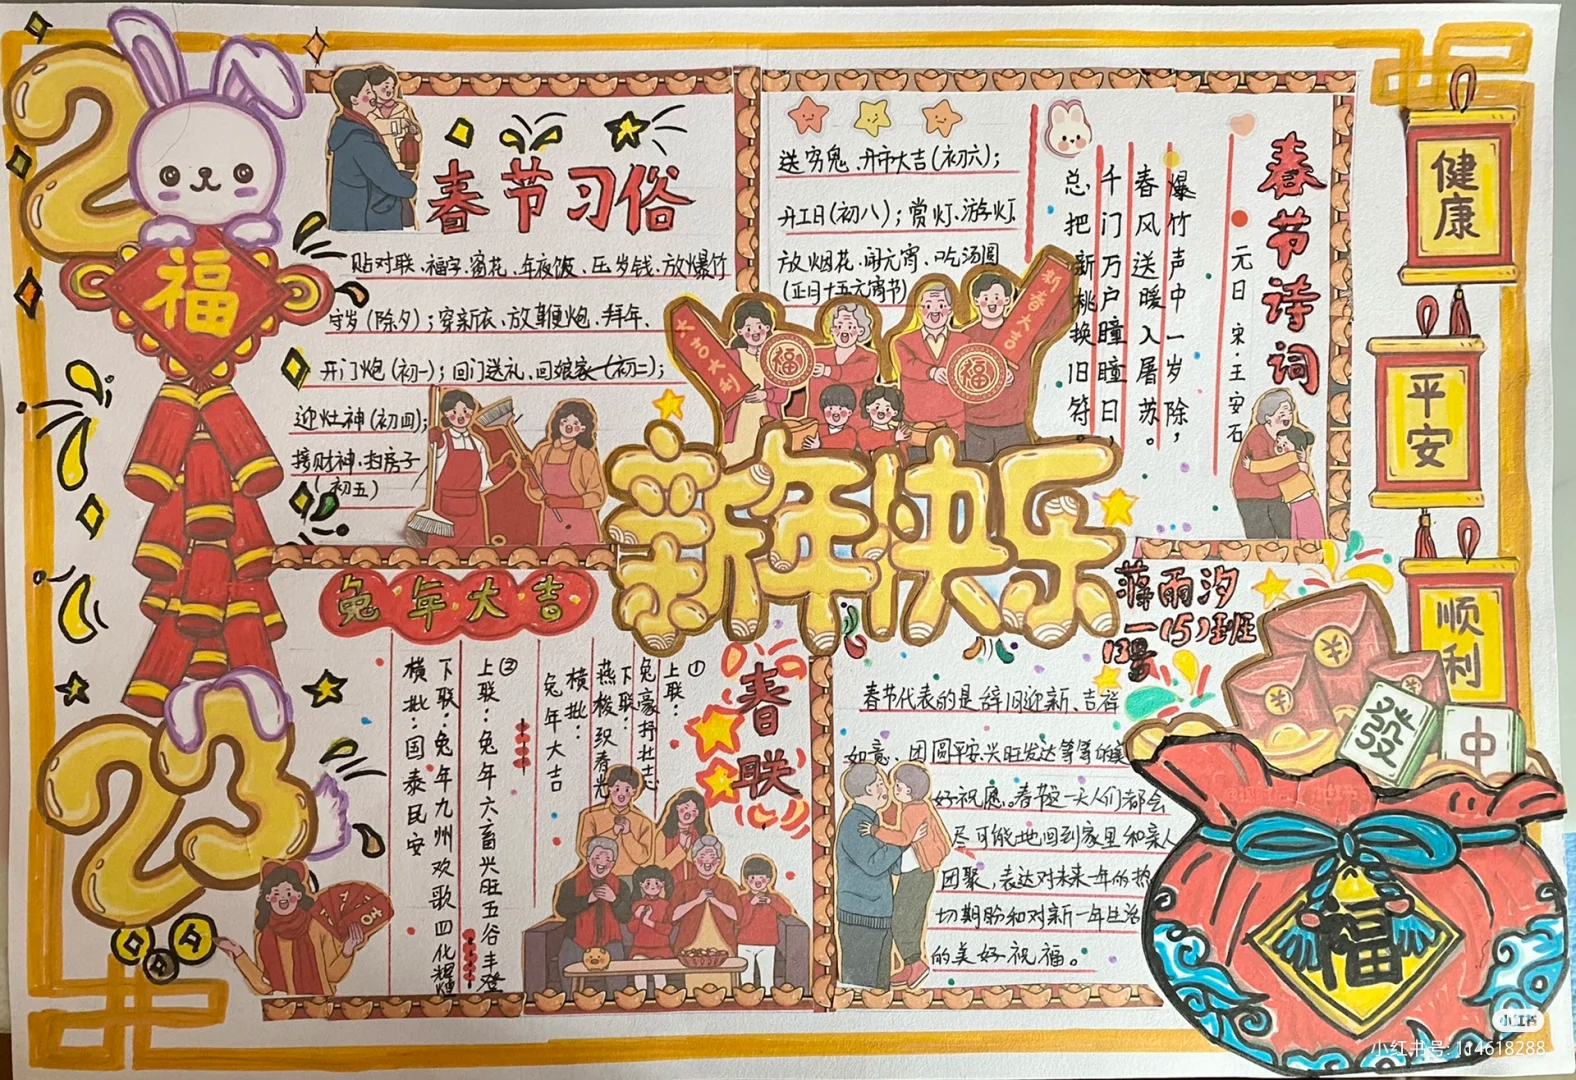 20
福
23
春节习俗
贴对联、福字、窗花、年夜饭、压岁钱、放爆竹
守岁(除夕);穿新衣、放鞭炮、拜年、
开门炮(初一);回门送礼、回娘家(初二);
迎灶神(初四);
接财神、扫房子
(初五)
送穷鬼、开市大吉(初六);
开工日(初八);赏灯、游灯、
放烟花、闹元宵、吃汤圆
(正月十五元宵节)
春节诗词
元日 宋·王安石
爆竹声中一岁除,
春风送暖入屠苏。
千门万户瞳瞳日,
总把新桃换旧符。
大吉大利
福
福
新春大吉
新年快乐
健康
平安
顺利
兔年大吉
春联
①
上联:兔豪抒壮志
下联:燕梭织春光
横批:兔年大吉
②
上联:兔年六畜兴旺五谷丰登
下联:兔年九州欢歌四化辉煌
横批:国泰民安
蒋雨汐
一(5)班
13号
春节代表的是辞旧迎新、吉祥
如意、团圆平安、兴旺发达等等的美
好祝愿。春节这一天人们都会
尽可能地回到家里和亲人
团聚,表达对未来一年的热
切期盼和对新一年生活
的美好祝福。
發
中
福
小红书
小红书号: 114618288